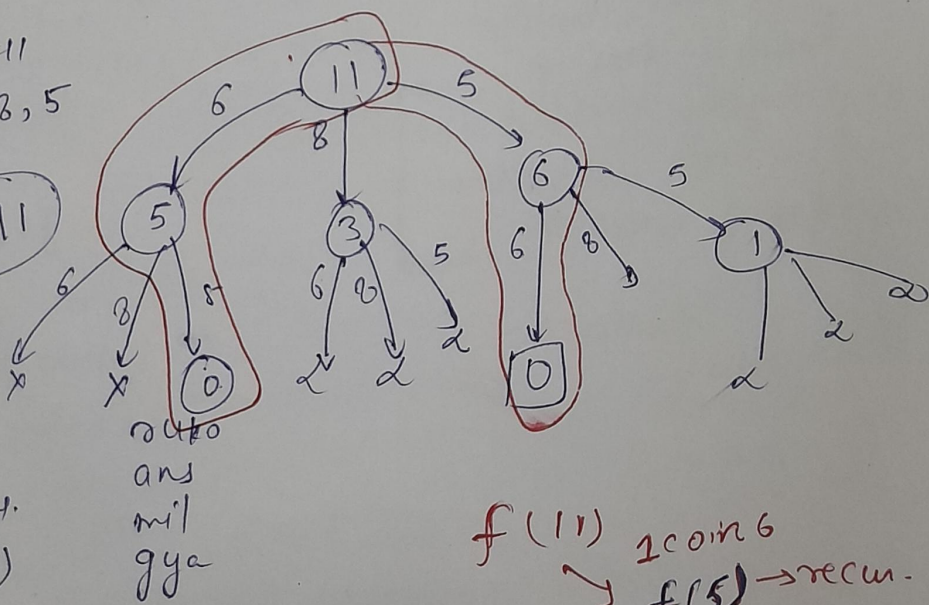 11
8, 5
11
11
6
8
5
5
3
6
5
1
6
8
5
0
6
8
5
6
8
0
ruko
ans
mil
gya
f(11) 1 coin 6
f(5) → recur.